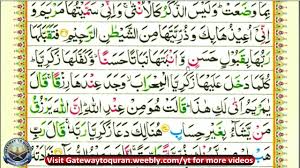 بِمَا وَضَعَتْ وَلَيْسَ الذَّكَرُ كَالْأُنْثٰى وَاِنِّيْ سَمَّيْتُهَا مَرْيَمَ وَ
اِنِّيْ اُعِيْذُهَا بِكَ وَذُرِّيَّتَهَا مِنَ الشَّيْطٰنِ الرَّجِيْمِ فَتَقَبَّلَهَا
رَبُّهَا بِقَبُوْلٍ حَسَنٍ وَّاَنْۢبَتَهَا نَبَاتًا حَسَنًا وَّكَفَّلَهَا زَكَرِيَّا
كُلَّمَا دَخَلَ عَلَيْهَا زَكَرِيَّا الْمِحْرَابَ وَجَدَ عِنْدَهَا رِزْقًا قَالَ
يٰمَرْيَمُ اَنّٰى لَكِ هٰذَا قَالَتْ هُوَ مِنْ عِنْدِ اللّٰهِ اِنَّ اللّٰهَ يَرْزُقُ
مَنْ يَّشَآءُ بِغَيْرِ حِسَابٍ هُنَالِكَ دَعَا زَكَرِيَّا رَبَّهٗ قَالَ رَبِّ
Visit Gatewaytoquran.weebly.com/yt for more videos